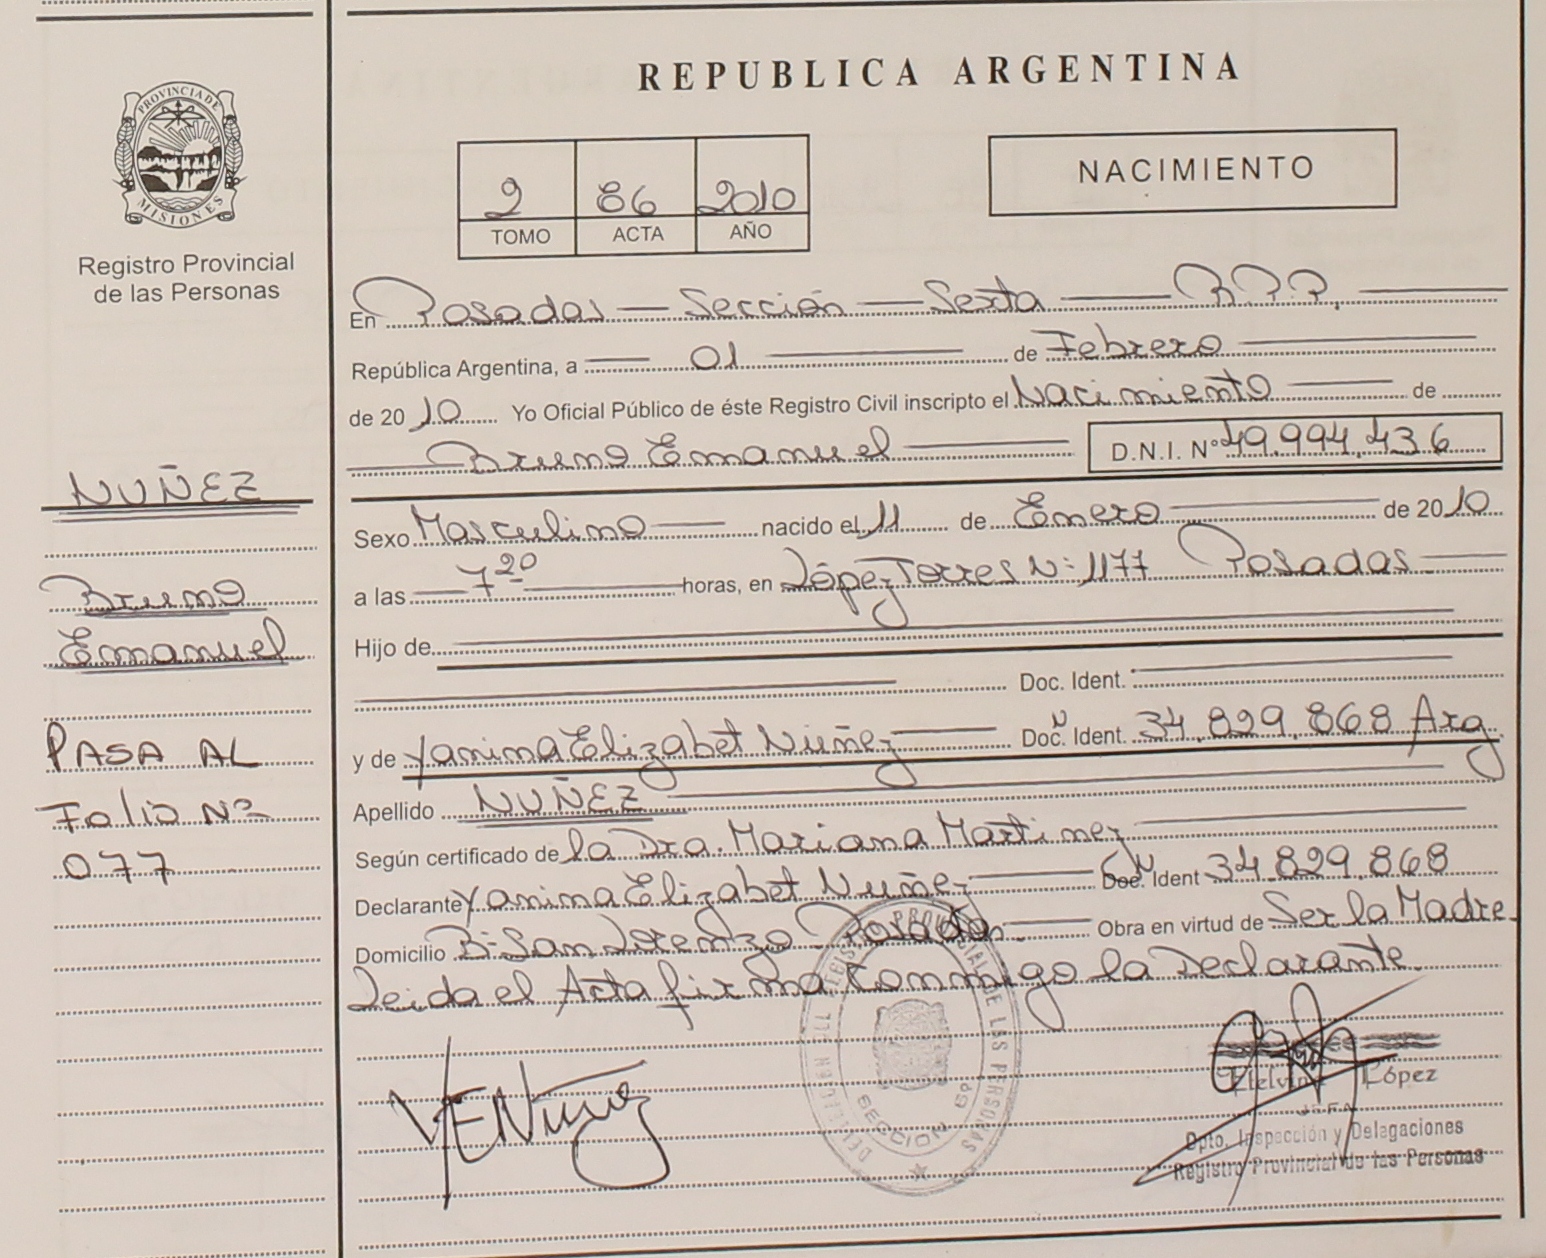 REPUBLICA ARGENTINA
PROVINCIA DE
MISIONES
Registro Provincial
de las Personas
2 86 2010
TOMO ACTA AÑO
NACIMIENTO
En Posadas - Sección - Sexta - R.P.P.
República Argentina, a 01 de Febrero
de 2010 Yo Oficial Público de éste Registro Civil inscripto el Nacimiento de
Bruno Emanuel D.N.I. Nº 49.994.436
Sexo Masculino nacido el 11 de Enero de 2010
a las 7 20 horas, en López Torres Nº 1177 Posadas
Hijo de
Doc. Ident.
y de Yanina Elizabet Nuñez Doc. Ident. 34.829.868 Arg
Apellido NUÑEZ
Según certificado de la Dra. Mariana Martinez
Declarante Yanina Elizabet Nuñez Doc. Ident 34.829.868
Domicilio Bº San Lorenzo Posadas. Obra en virtud de Ser la Madre
Leida el Acta firma conmigo la Declarante
NUÑEZ
Bruno
Emanuel
PASA AL
Folio Nº
077
VENuñez
DELEGACION DEL REGISTRO PROVINCIAL DE LAS PERSONAS
SECCION 6º
López
JEFA
Dpto. Inspección y Delegaciones
Registro Provincial de las Personas